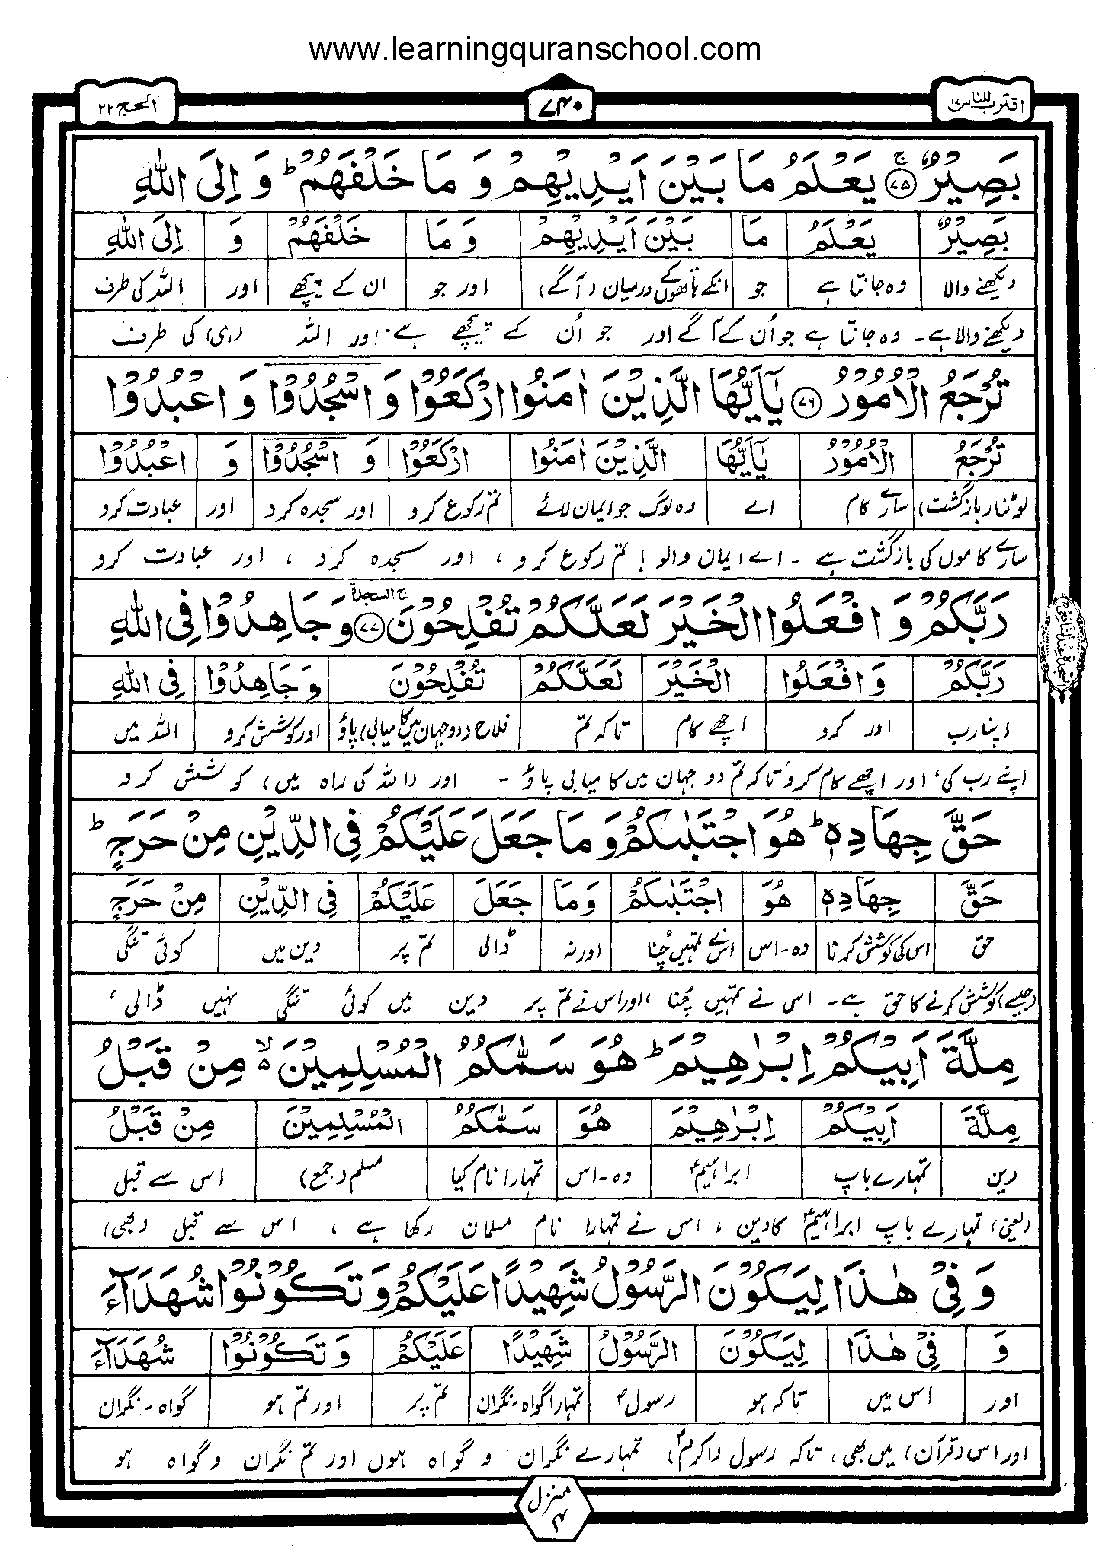 www.learningquranschool.com
اقترب للناس ۱۷ ۷۴۰ الحج ۲۲
بَصِیْرٌ ۚ﴿۷۵﴾ یَعْلَمُ مَا بَیْنَ اَیْدِیْهِمْ وَ مَا خَلْفَهُمْ ؕ وَ اِلَی اللّٰهِ
بَصِیْرٌ یَعْلَمُ مَا بَیْنَ اَیْدِیْهِمْ وَ مَا خَلْفَهُمْ وَ اِلَی اللّٰهِ
دیکھنے والا وہ جانتا ہے جو انکے ہاتھوں کے درمیان (آگے) اور جو ان کے پیچھے اور اللہ کی طرف
دیکھنے والا ہے۔ وہ جانتا ہے جو اُن کے آگے اور جو اُن کے پیچھے ہے، اور اللہ (ہی) کی طرف
تُرْجَعُ الْاُمُوْرُ ﴿۷۶﴾ یٰۤاَیُّهَا الَّذِیْنَ اٰمَنُوا ارْكَعُوْا وَ اسْجُدُوْا وَ اعْبُدُوْا
تُرْجَعُ الْاُمُوْرُ یٰۤاَیُّهَا الَّذِیْنَ اٰمَنُوا ارْكَعُوْا وَ اسْجُدُوْا وَ اعْبُدُوْا
لوٹنا (بازگشت) سارے کام اے وہ لوگ جو ایمان لائے تم رکوع کرو اور سجدہ کرو اور عبادت کرو
سارے کاموں کی بازگشت ہے ۔ اے ایمان والو! تم رکوع کرو ، اور سجدہ کرو ، اور عبادت کرو
رَبَّكُمْ وَ افْعَلُوا الْخَیْرَ لَعَلَّكُمْ تُفْلِحُوْنَ ۚ السجدة ﴿۷۷﴾ وَ جَاهِدُوْا فِی اللّٰهِ
رَبَّكُمْ وَ افْعَلُوا الْخَیْرَ لَعَلَّكُمْ تُفْلِحُوْنَ وَ جَاهِدُوْا فِی اللّٰهِ
اپنا رب اور کرو اچھے کام تاکہ تم فلاح (دو جہان میں کامیابی) پاؤ اور کوشش کرو اللہ میں
اپنے رب کی، اور اچھے کام کرو تاکہ تم دو جہان میں کامیابی پاؤ ۔ اور (اللہ کی راہ میں) کوشش کرو
حَقَّ جِهَادِهٖ ؕ هُوَ اجْتَبٰىكُمْ وَ مَا جَعَلَ عَلَیْكُمْ فِی الدِّیْنِ مِنْ حَرَجٍ ؕ
حَقَّ جِهَادِهٖ هُوَ اجْتَبٰىكُمْ وَ مَا جَعَلَ عَلَیْكُمْ فِی الدِّیْنِ مِنْ حَرَجٍ
حق اس کی کوشش کرنا وہ۔اس اس نے تمہیں چُنا اور نہ ڈالی تم پر دین میں کوئی تنگی
(جیسے) کوشش کرنے کا حق ہے۔ اس نے تمہیں چُنا، اور اس نے تم پر دین میں کوئی تنگی نہیں ڈالی ،
مِلَّةَ اَبِیْكُمْ اِبْرٰهِیْمَ ؕ هُوَ سَمّٰىكُمُ الْمُسْلِمِیْنَ ۙ۬ مِنْ قَبْلُ
مِلَّةَ اَبِیْكُمْ اِبْرٰهِیْمَ هُوَ سَمّٰىكُمُ الْمُسْلِمِیْنَ مِنْ قَبْلُ
دین تمہارے باپ ابراہیمؑ وہ۔اس تمہارا نام کیا مسلم (جمع) اس سے قبل
(یعنی) تمہارے باپ ابراہیمؑ کا دین ، اس نے تمہارا نام مسلمان رکھا ہے ، اس سے قبل (بھی)
وَ فِیْ هٰذَا لِیَكُوْنَ الرَّسُوْلُ شَهِیْدًا عَلَیْكُمْ وَ تَكُوْنُوْا شُهَدَآءَ
وَ فِیْ هٰذَا لِیَكُوْنَ الرَّسُوْلُ شَهِیْدًا عَلَیْكُمْ وَ تَكُوْنُوْا شُهَدَآءَ
اور اس میں تاکہ ہو رسولؐ تمہارا گواہ۔نگران تم پر اور تم ہو گواہ۔نگران
اور اس (قرآن) میں بھی، تاکہ رسول (اکرمؐ) تمہارے نگران و گواہ ہوں اور تم نگران و گواہ ہو
منزل ۴